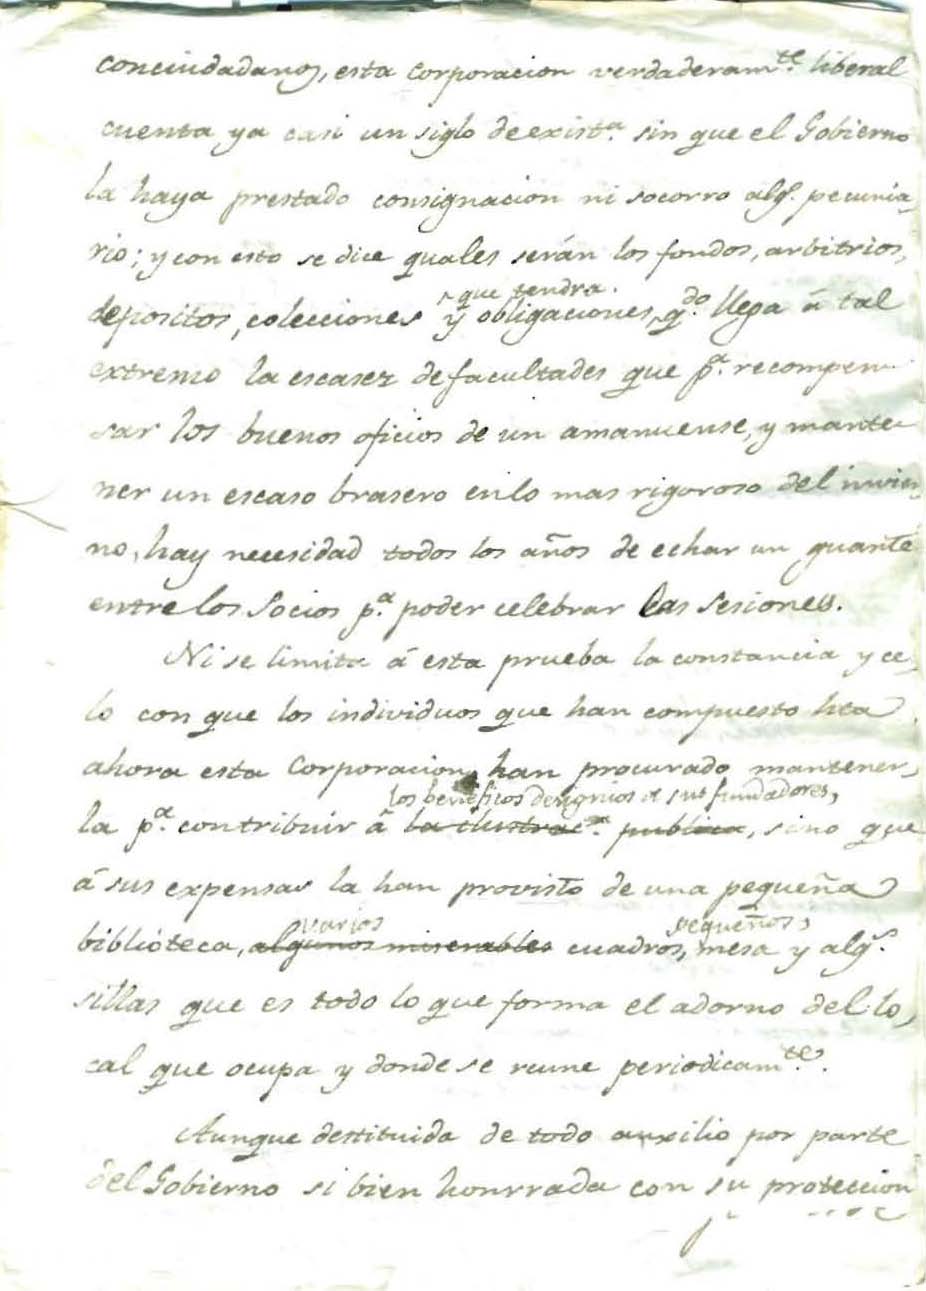 conciudadanos, esta Corporacion verdaderam.te liberal
cuenta ya casi un siglo de exist.a sin que el Gobierno
la haya prestado consignacion ni socorro alg.º pecunia-
rio; y con esto se dice quales serán los fondos, arbitrios,
que tendra.
depositos, colecciones y obligaciones, q.do llega á tal
extremo la escasez de facultades que p.a recompen-
sar los buenos oficios de un amanuense, y mante-
ner un escaso brasero en lo mas rigoroso del invier-
no, hay necesidad todos los años de echar un guante
entre los Socios p.a poder celebrar las sesiones.
Ni se limita á esta prueba la constancia y ce-
lo con que los individuos que han compuesto hta
ahora esta Corporacion han procurado mantener-
los beneficos designios de sus fundadores,
la p.a contribuir á la ilustrac.n publica, sino que
á sus expensas la han provisto de una pequeña
varios pequeños,
biblióteca, algunos miserables cuadros, mesa y alg.s
sillas que es todo lo que forma el adorno del lo-
cal que ocupa y donde se reune periodicam.te.
Aunque destituida de todo auxilio por parte
del Gobierno si bien honrrada con su proteccion